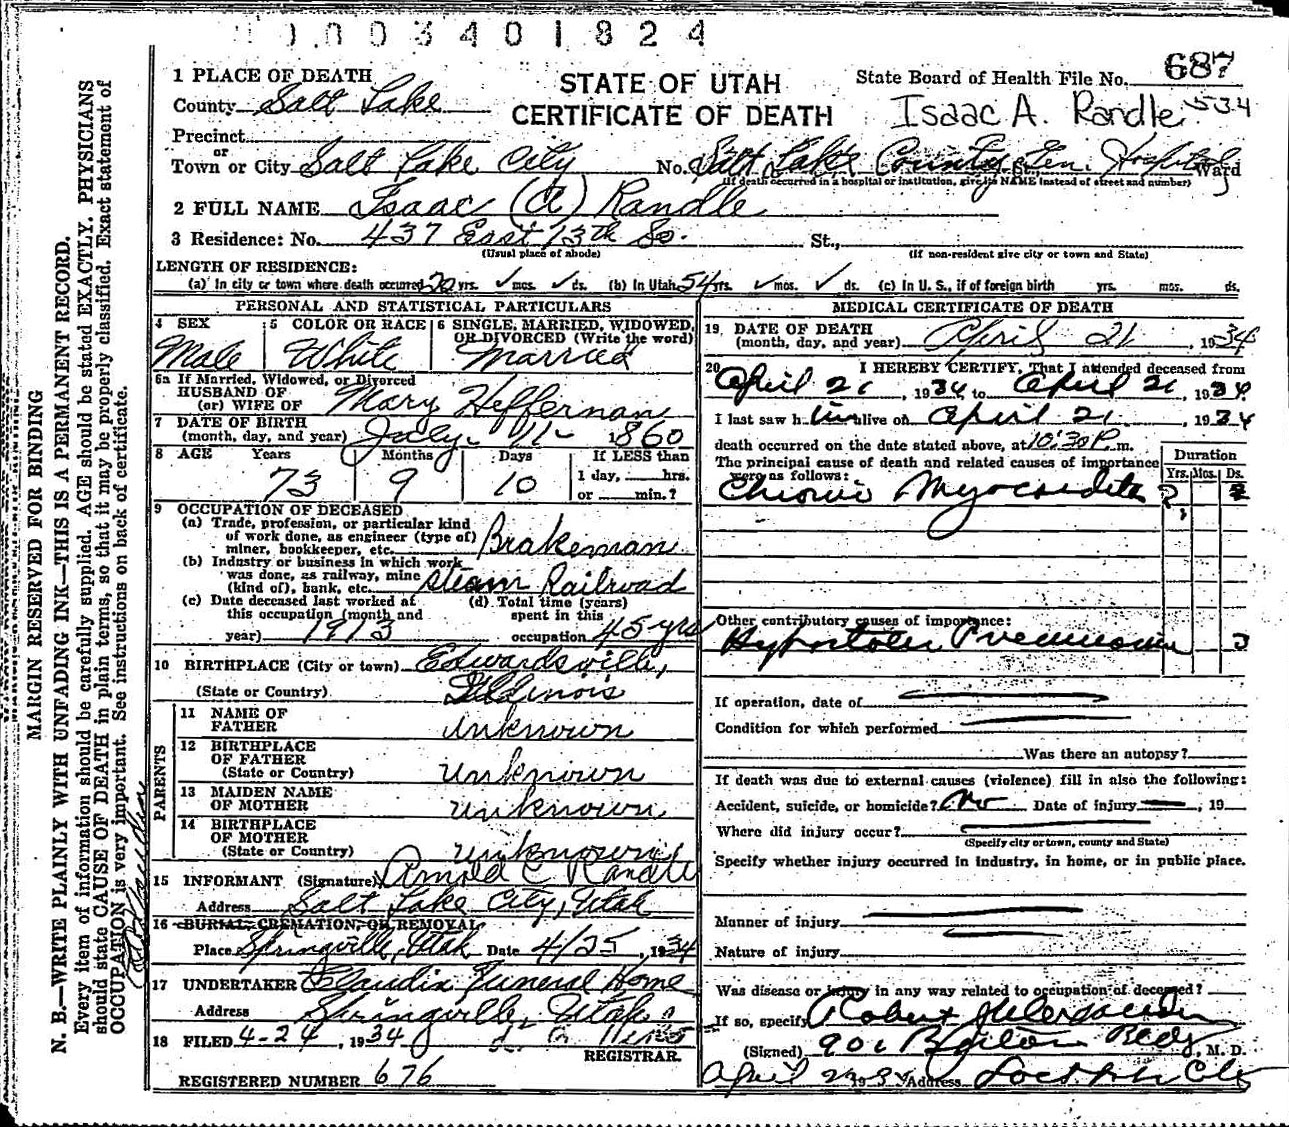 003401824
1 PLACE OF DEATH
County Salt Lake
STATE OF UTAH
CERTIFICATE OF DEATH
State Board of Health File No. 687
Isaac A. Randle 534
Precinct
or
Town or City Salt Lake City No. Salt Lake County Gen. Hospital St., Ward
(If death occurred in a hospital or institution, give its NAME instead of street and number)
2 FULL NAME Isaac (A) Randle
3 Residence: No. 437 East 13th So. St.,
(Usual place of abode) (If non-resident give city or town and State)
LENGTH OF RESIDENCE:
(a) In city or town where death occurred 20 yrs. ✓ mos. ✓ ds. (b) In Utah 54 yrs. ✓ mos. ✓ ds. (c) In U. S., if of foreign birth yrs. mos. ds.
PERSONAL AND STATISTICAL PARTICULARS
4 SEX
Male
5 COLOR OR RACE
White
6 SINGLE, MARRIED, WIDOWED, OR DIVORCED (Write the word)
Married
6a If Married, Widowed, or Divorced
HUSBAND OF
(or) WIFE OF Mary Heffernan
7 DATE OF BIRTH
(month, day, and year) July 11 1860
8 AGE Years Months Days If LESS than
73 9 10 1 day, hrs.
or min.?
9 OCCUPATION OF DECEASED
(a) Trade, profession, or particular kind
of work done, as engineer (type of)
miner, bookkeeper, etc. Brakeman
(b) Industry or business in which work
was done, as railway, mine
(kind of), bank, etc. Steam Railroad
(c) Date deceased last worked at
this occupation (month and
year) 1913
(d) Total time (years)
spent in this
occupation 45 yrs
10 BIRTHPLACE (City or town) Edwardsville,
(State or Country) Illinois
PARENTS
11 NAME OF
FATHER unknown
12 BIRTHPLACE
OF FATHER
(State or Country) unknown
13 MAIDEN NAME
OF MOTHER unknown
14 BIRTHPLACE
OF MOTHER
(State or Country) unknown
15 INFORMANT (Signature) Arnold C Randle
Address Salt Lake City, Utah
16 BURIAL, CREMATION, OR REMOVAL
Place Springville, Utah Date 4/25, 1934
17 UNDERTAKER Claudin Funeral Home
Address Springville, Utah
18 FILED 4-24, 1934
REGISTRAR.
REGISTERED NUMBER 676
MEDICAL CERTIFICATE OF DEATH
19 DATE OF DEATH
(month, day, and year) April 21, 1934
20 I HEREBY CERTIFY, That I attended deceased from
April 21, 1934, to April 21, 1934
I last saw him alive on April 21, 1934
death occurred on the date stated above, at 10:30 P. m.
The principal cause of death and related causes of importance
were as follows:
Duration
Yrs. Mos. Ds.
Chronic Myocarditis ?
Other contributory causes of importance:
Hypostatic Pneumonia 3
If operation, date of
Condition for which performed
Was there an autopsy?
If death was due to external causes (violence) fill in also the following:
Accident, suicide, or homicide? no Date of injury , 19
Where did injury occur?
(Specify city or town, county and State)
Specify whether injury occurred in industry, in home, or in public place.
Manner of injury
Nature of injury
Was disease or injury in any way related to occupation of deceased?
If so, specify
(Signed) Robert M. D.
April 1934 Address
MARGIN RESERVED FOR BINDING
N. B.—WRITE PLAINLY WITH UNFADING INK—THIS IS A PERMANENT RECORD.
Every item of information should be carefully supplied. AGE should be stated EXACTLY. PHYSICIANS
should state CAUSE OF DEATH in plain terms, so that it may be properly classified. Exact statement of
OCCUPATION is very important. See instructions on back of certificate.